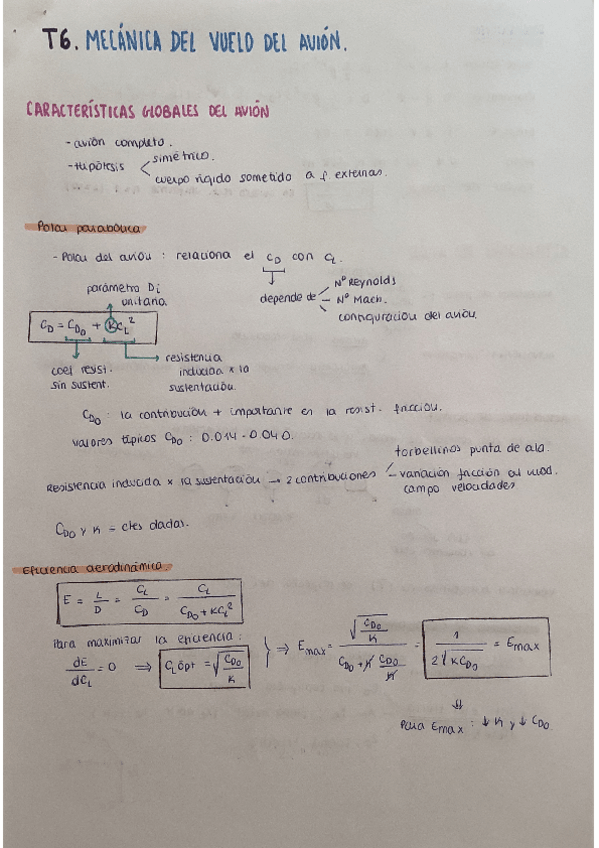 T6. MECÁNICA DEL VUELO DEL AVIÓN.
CARACTERÍSTICAS GLOBALES DEL AVIÓN
- avión completo.
- Hipótesis
simétrico.
cuerpo rígido sometido a f. externas.
Polar parabólica
- Polar del avión : relaciona el CD con CL.
depende de
Nº Reynolds
Nº Mach.
configuración del avión.
parámetro Di
unitario.
CD = CD0 + KCL²
coef resist.
sin sustent.
resistencia
inducida x la
sustentación.
CD0 : la contribución + importante en la resist. fricción.
Valores típicos CD0 : 0.014 - 0.040.
Resistencia inducida x la sustentación → 2 contribuciones
torbellinos punta de ala.
variación fricción al mod.
campo velocidades
CD0 y K = ctes dadas.
Eficiencia aerodinámica.
E = L/D = CL/CD = CL/(CD0 + KCL²)
Para maximizar la eficiencia :
dE/dCL = 0 ⇒ CL opt = √(CD0/K)
⇒ Emax = √(CD0/K)/(CD0 + K CD0/K) = 1/(2√(KCD0)) = Emax
⇓
Para Emax : ↓ K y ↓ CD0